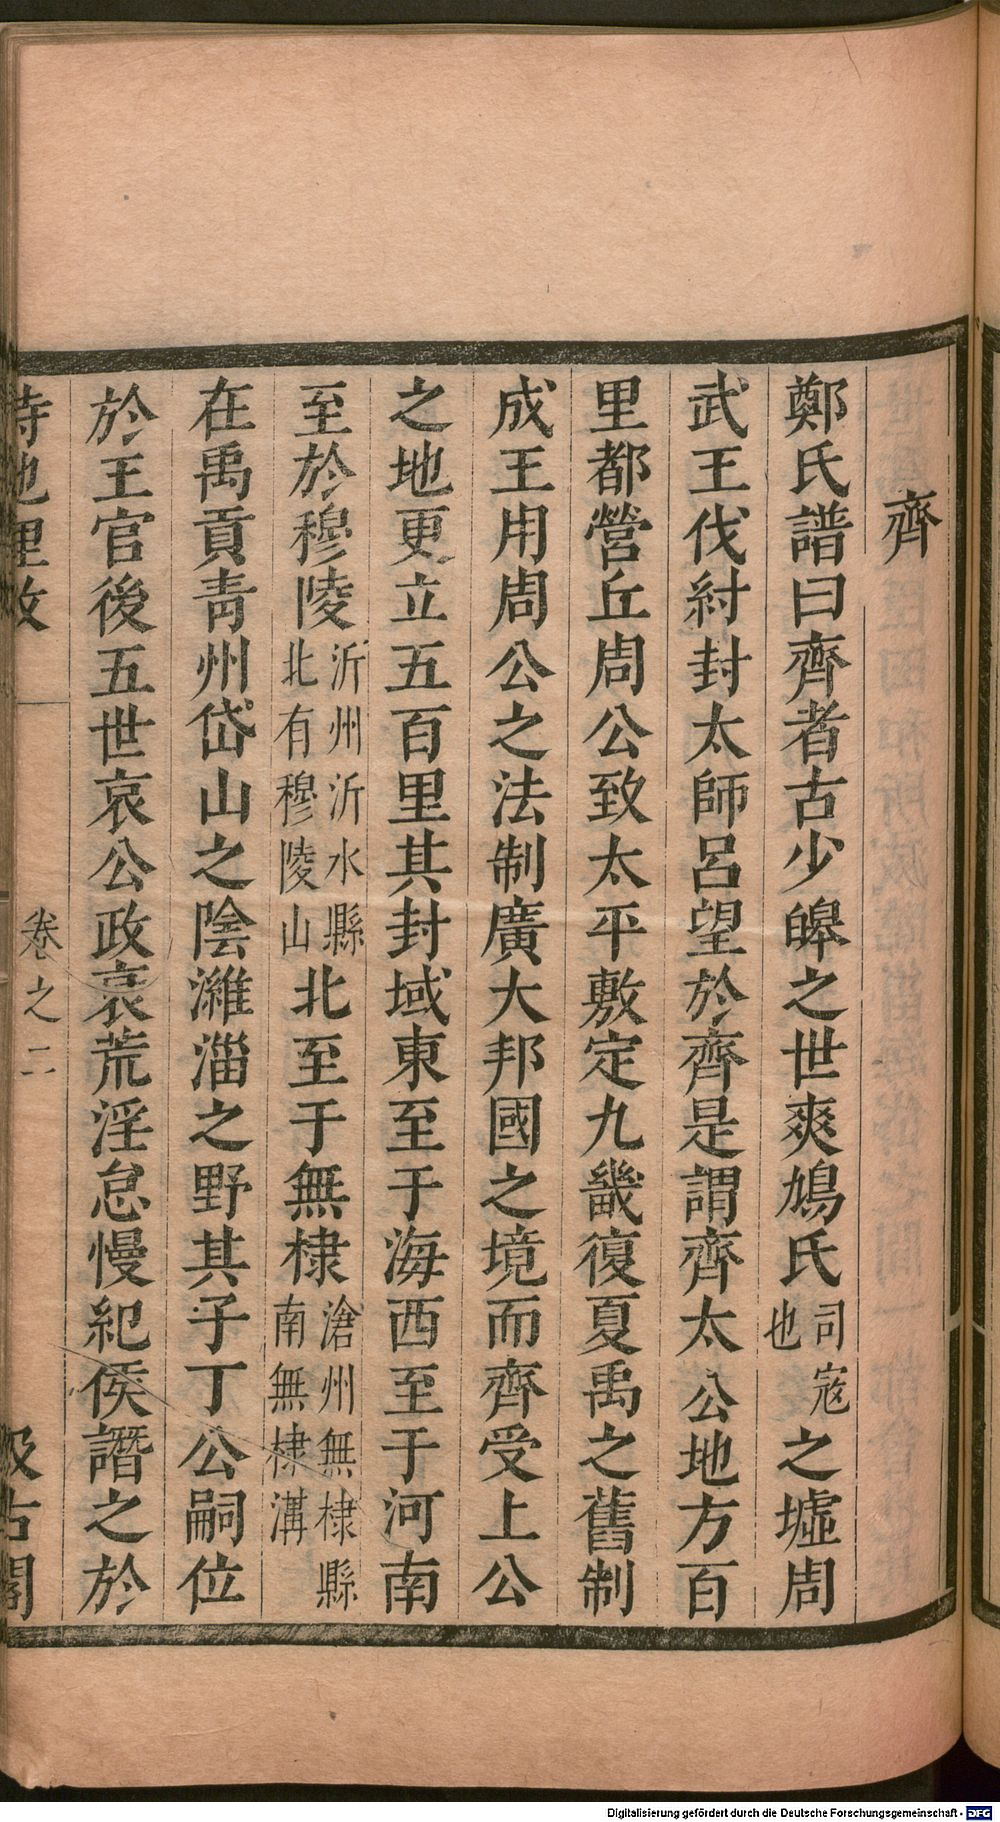 齊
鄭氏譜曰齊者古少皥之世爽鳩氏司寇也之墟周
武王伐紂封太師呂望於齊是謂齊太公地方百
里都營丘周公致太平敷定九畿復夏禹之舊制
成王用周公之法制廣大邦國之境而齊受上公
之地更立五百里其封域東至于海西至于河南
至於穆陵沂州沂水縣北有穆陵山北至于無棣滄州無棣縣南無棣溝
在禹貢青州岱山之陰濰淄之野其子丁公嗣位
於王官後五世哀公政衰荒淫怠慢紀侯譖之於
詩地理攷
卷之二
汲古閣
Digitalisierung gefördert durch die Deutsche Forschungsgemeinschaft - DFG